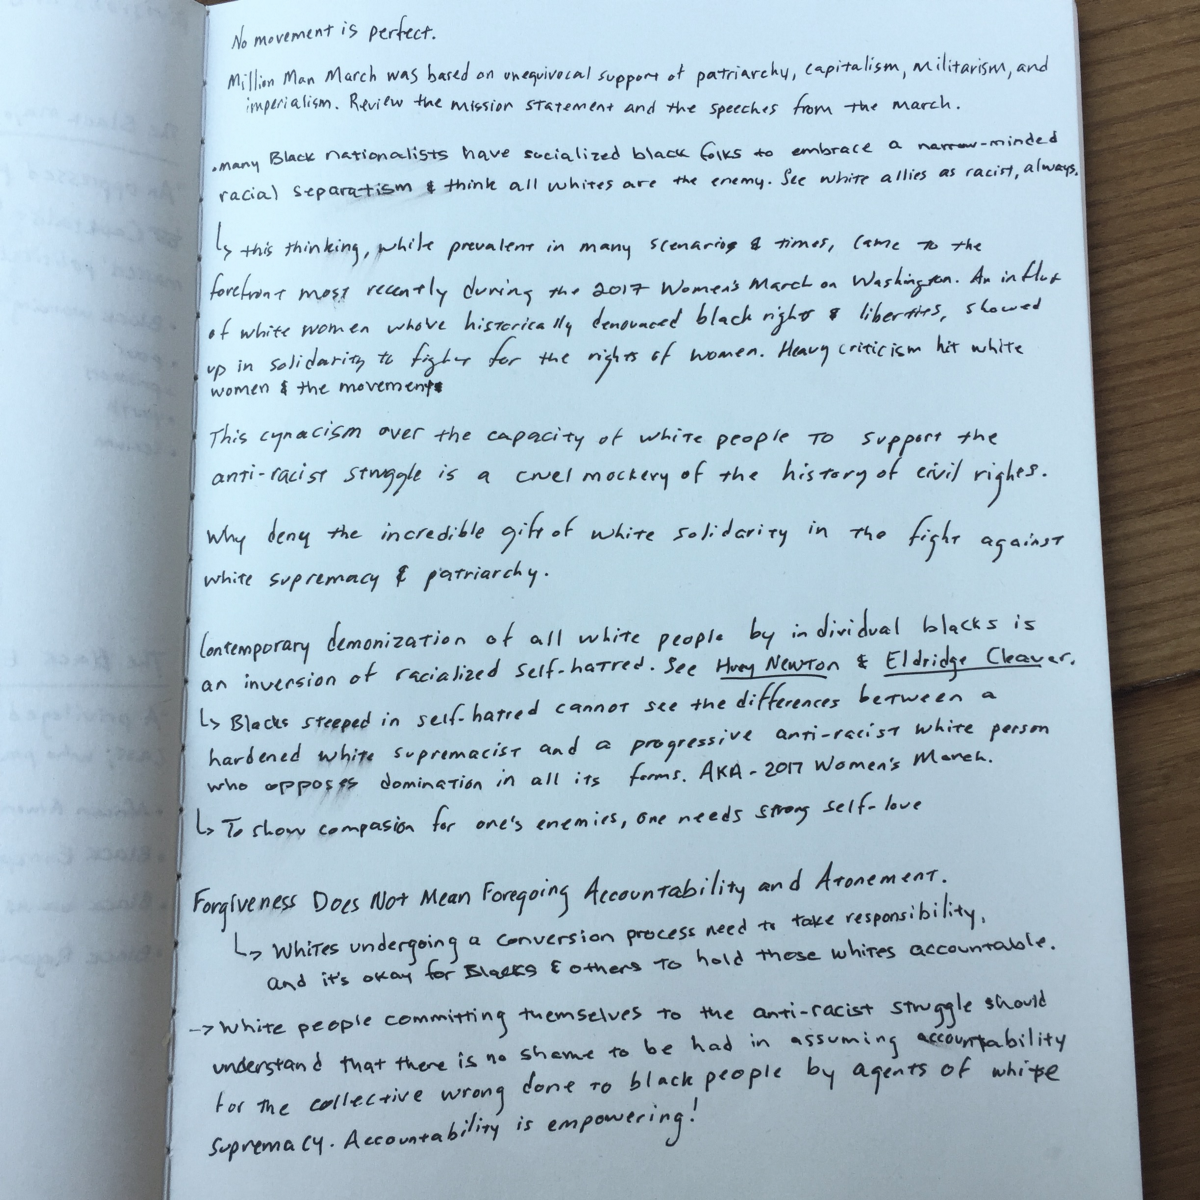 No movement is perfect.
Million Man March was based on unequivocal support of patriarchy, capitalism, militarism, and
imperialism. Review the mission statement and the speeches from the march.
•Many Black nationalists have socialized black folks to embrace a narrow-minded
racial separatism & think all whites are the enemy. See white allies as racist, always.
↳ this thinking, while prevalent in many scenarios & times, came to the
forefront most recently during the 2017 Women's March on Washington. An influx
of white women whove historically denounced black rights & liberties, showed
up in solidarity to fight for the rights of women. Heavy criticism hit white
women & the movement
This cynacism over the capacity of white people to support the
anti-racist struggle is a cruel mockery of the history of civil rights.
Why deny the incredible gift of white solidarity in the fight against
white supremacy & patriarchy.
Contemporary demonization of all white people by individual blacks is
an inversion of racialized self-hatred. See Huey Newton & Eldridge Cleaver.
↳ Blacks steeped in self-hatred cannot see the differences between a
hardened white supremacist and a progressive anti-racist white person
who opposes domination in all its forms. AKA - 2017 Women's March.
↳ To show compasion for one's enemies, one needs strong self-love
Forgiveness Does Not Mean Foregoing Accountability and Atonement.
↳ Whites undergoing a conversion process need to take responsibility,
and it's okay for Blacks & others to hold those whites accountable.
→ White people committing themselves to the anti-racist struggle should
understand that there is no shame to be had in assuming accountability
for the collective wrong done to black people by agents of white
supremacy. Accountability is empowering!